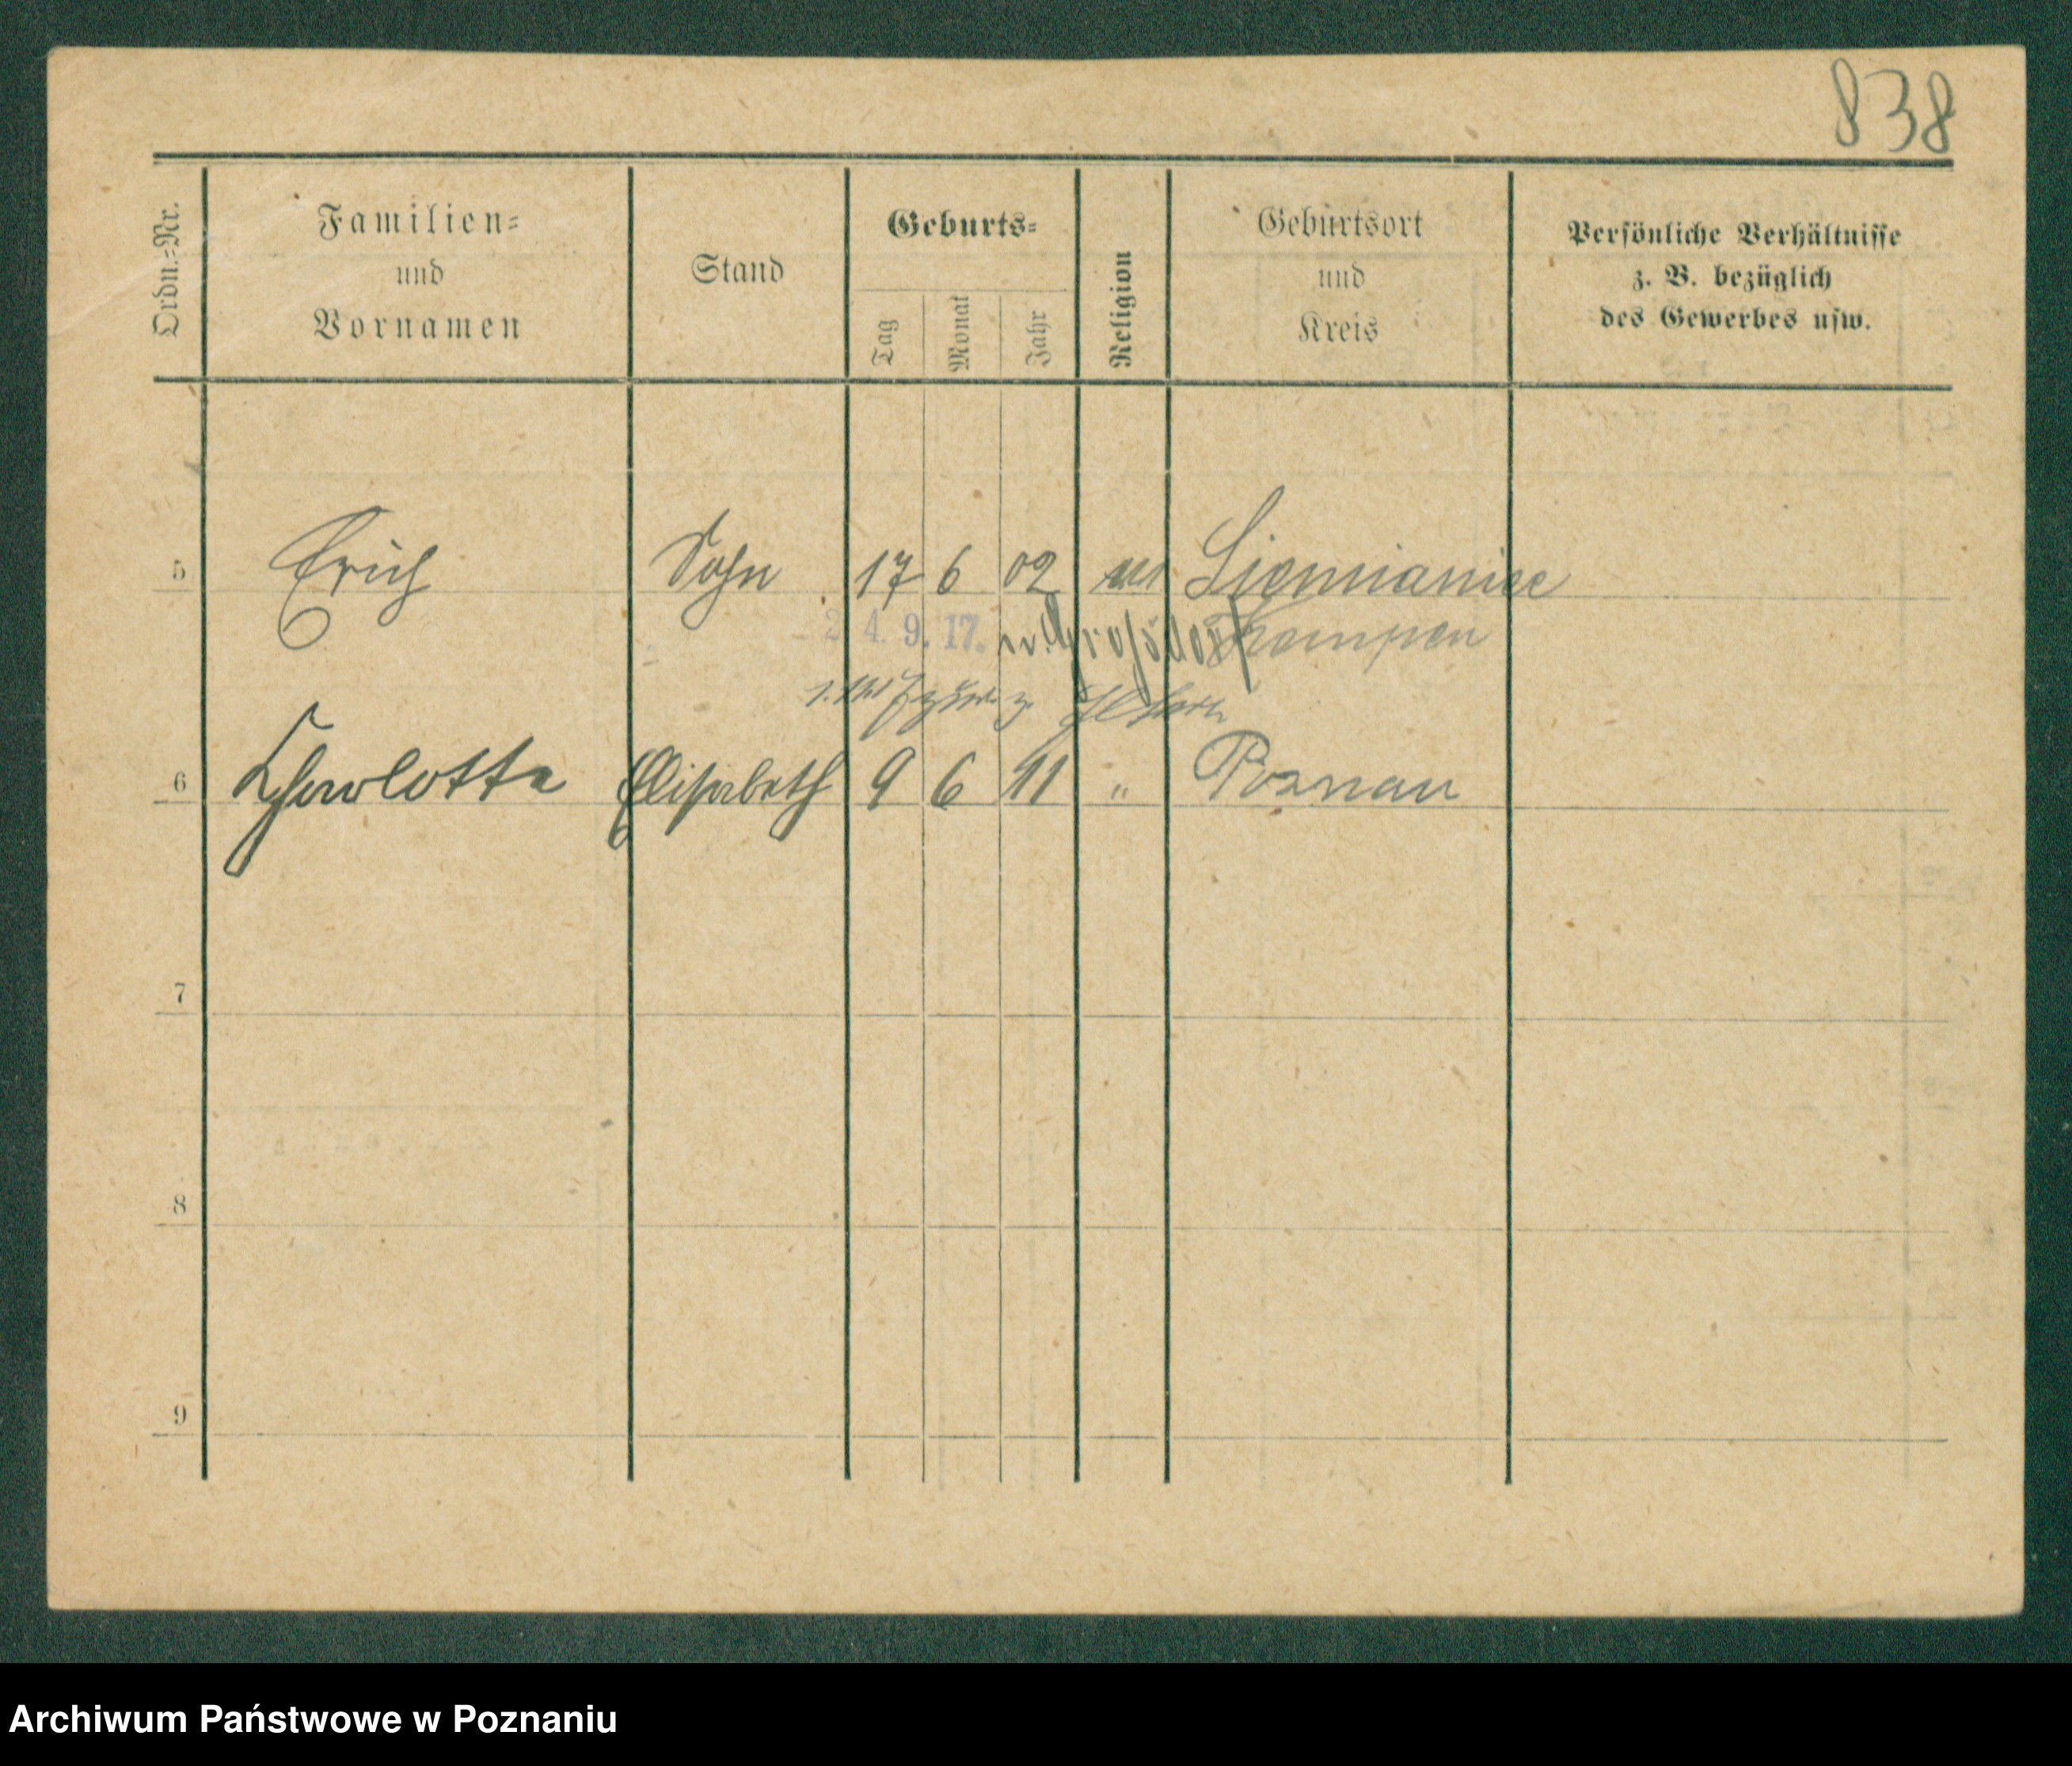 838
Ordn.-Nr.
Familien-
und
Vornamen
Stand
Geburts-
Tag
Monat
Jahr
Religion
Geburtsort
und
Kreis
Persönliche Verhältnisse
z. B. bezüglich
des Gewerbes usw.
5 Erich Sohn 17 6 02 Siemianice
24. 9. 17. n. Großdorf Kempen
z. Eltern
6 Charlotte Elisabeth 9 6 11 " Poznan
7
8
9
Archiwum Państwowe w Poznaniu